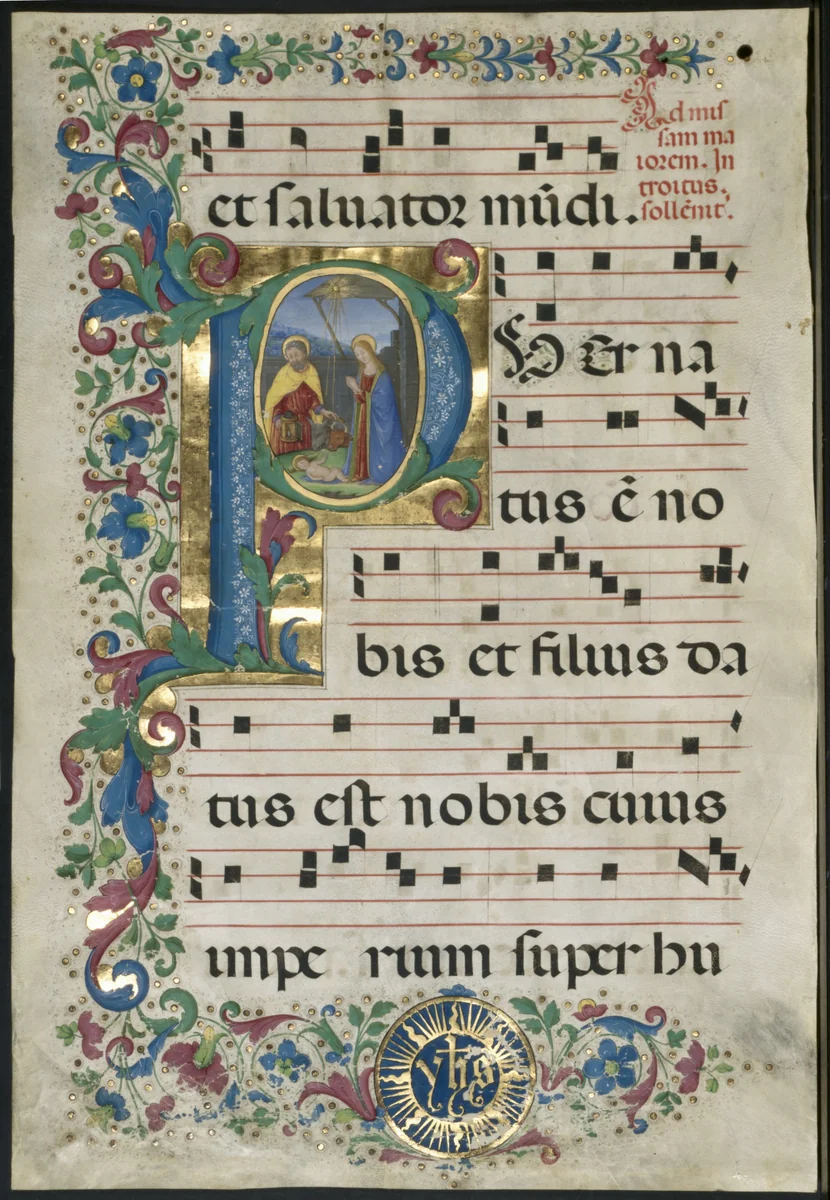 et saluator mūdi.
Ad mis
sam ma
iorem. In
troitus.
sollēnit'.
PUer na
tus ē no
bis et filius da
tus est nobis cuius
impe rium super hu
yhs